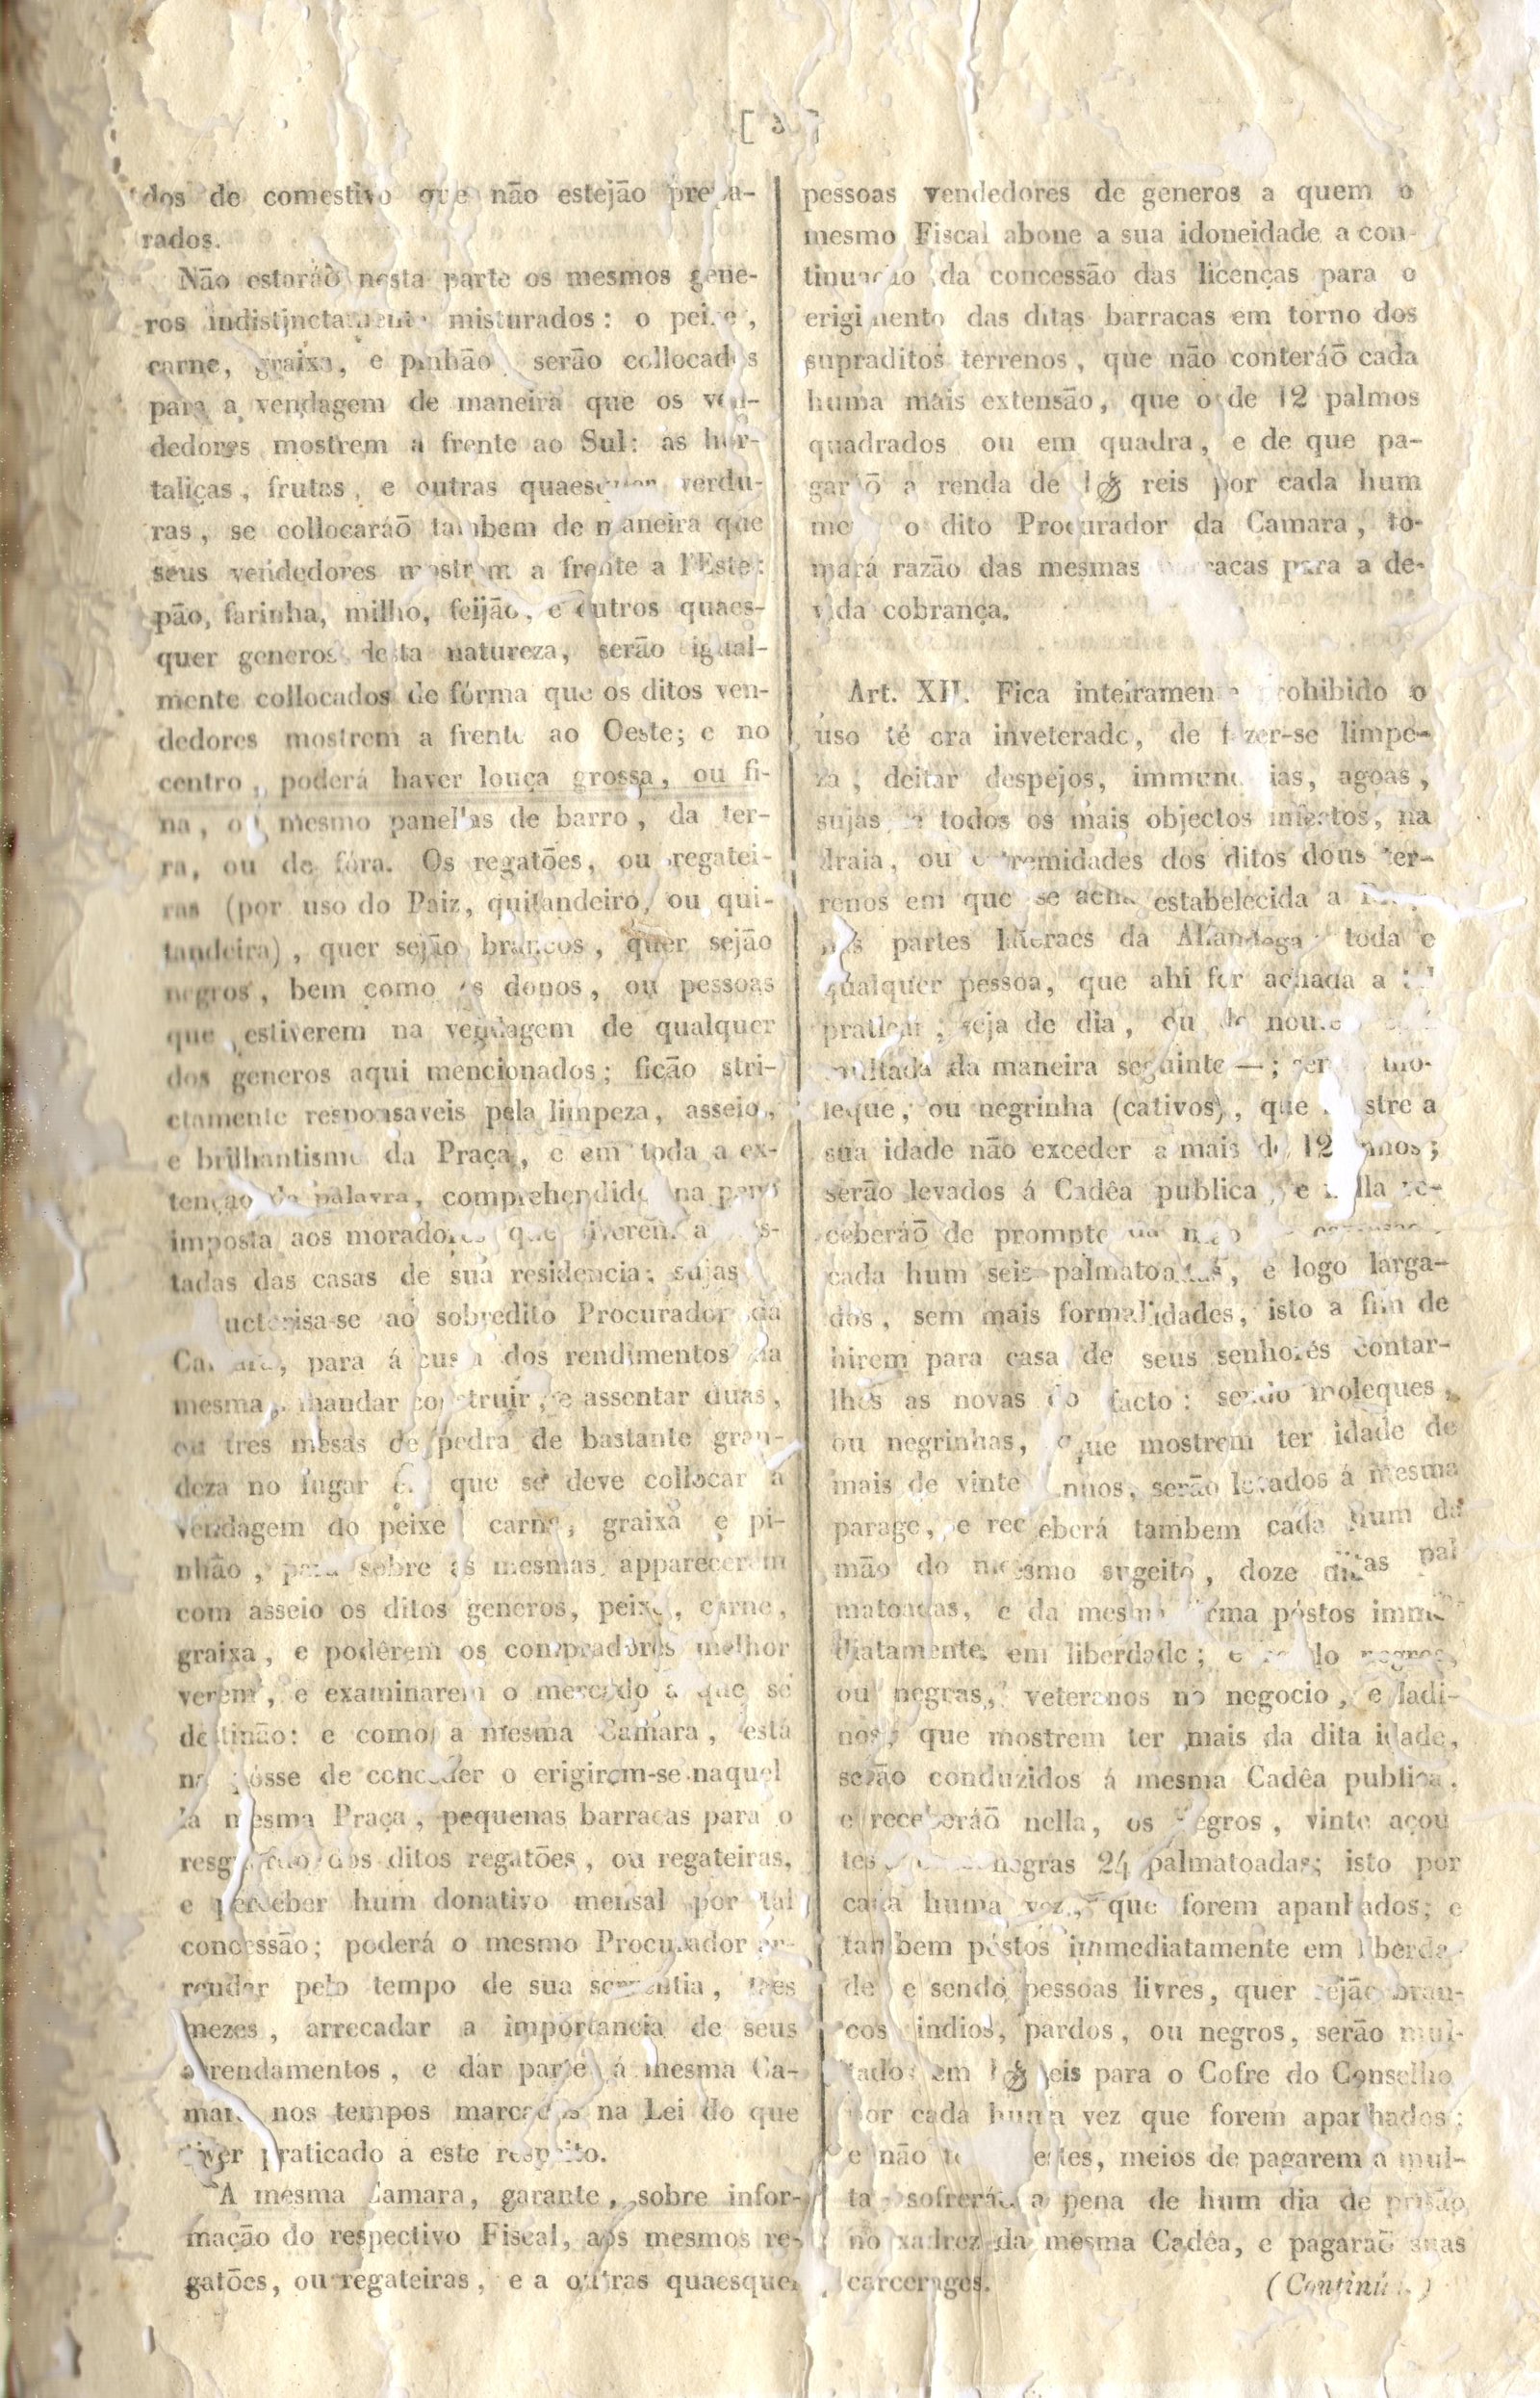 dos de comestivo que não estejão prepa-
rados.
Não estaráõ nesta parte os mesmos gene-
ros indistinctamente misturados: o peixe,
carne, graixa, e pinhão serão collocados
para a vendagem de maneira que os ven-
dedores mostrem a frente ao Sul: as hor-
taliças, frutas, e outras quaesquer verdu-
ras, se collocaráõ tambem de maneira que
seus vendedores mostrem a frente a l'Este:
pão, farinha, milho, feijão, e outros quaes-
quer generos desta natureza, serão igual-
mente collocados de fórma que os ditos ven-
dedores mostrem a frente ao Oeste; e no
centro, poderá haver louça grossa, ou fi-
na, ou mesmo panellas de barro, da ter-
ra, ou de fóra. Os regatões, ou regatei-
ras (por uso do Paiz, quitandeiro, ou qui-
tandeira), quer sejão brancos, quer sejão
negros, bem como os donos, ou pessoas
que estiverem na vendagem de qualquer
dos generos aqui mencionados; ficão stri-
ctamente responsaveis pela limpeza, asseio,
e brilhantismo da Praça, e em toda a ex-
tenção da palavra, comprehendido na pena
imposta aos moradores que tiverem a
tadas das casas de sua residencia; sujas
se ao sobredito Procurador da
Camara, para á custa dos rendimentos da
mesma, mandar construir, e assentar duas,
ou tres mesas de pedra de bastante gran-
deza no lugar em que se deve collocar a
vendagem do peixe, carne, graixa e pi-
nhão, para sobre as mesmas apparecerem
com asseio os ditos generos, peixe, carne,
graixa, e podêrem os compradores melhor
verem, e examinarem o mercado a que se
destinão: e como a mesma Camara, está
na pósse de conceder o erigirem-se naquel
la mesma Praça, pequenas barracas para o
resguardo dos ditos regatões, ou regateiras,
e perceber hum donativo mensal por tal
concessão; poderá o mesmo Procurador ar-
rendar pelo tempo de sua serventia, tres
mezes, arrecadar a importancia de seus
arrendamentos, e dar parte á mesma Ca-
mara nos tempos marcados na Lei do que
tiver praticado a este respeito.
A mesma Camara, garante, sobre infor-
mação do respectivo Fiscal, aos mesmos re-
gatões, ou regateiras, e a outras quaesquer
pessoas vendedores de generos a quem o
mesmo Fiscal abone a sua idoneidade a con-
tinuação da concessão das licenças para o
erigimento das ditas barracas em torno dos
supraditos terrenos, que não conteráõ cada
huma mais extensão, que o de 12 palmos
quadrados ou em quadra, e de que pa-
garáõ a renda de 1$ reis por cada hum
o dito Procurador da Camara, to-
mará razão das mesmas barracas para a de-
vida cobrança.
Art. XII. Fica inteiramente prohibido o
uso té ora inveterado, de fazer-se limpe-
za, deitar despejos, immundicias, agoas,
sujas e todos os mais objectos infectos, na
praia, ou extremidades dos ditos dous ter-
renos em que se acha estabelecida a
nas partes lateraes da Alfandega: toda e
qualquer pessoa, que ahi for achada a
praticar; seja de dia, ou de noute
multada da maneira seguinte —; mo-
leque, ou negrinha (cativos), que mostre a
sua idade não exceder a mais de 12 annos;
serão levados á Cadêa publica, e nella re-
ceberáõ de prompto
cada hum seis palmatoadas, e logo larga-
dos, sem mais formalidades, isto a fim de
hirem para casa de seus senhores contar-
lhes as novas do facto: sendo moleques,
ou negrinhas, que mostrem ter idade de
mais de vinte annos, serão levados á mesma
parage, e receberá tambem cada hum da
mão do mesmo sugeito, doze ditas pal
matoadas, e da mesma fórma póstos imme
diatamente em liberdade; e sendo negros,
ou negras, veteranos no negocio, e ladi-
nos, que mostrem ter mais da dita idade,
serão conduzidos á mesma Cadêa publica,
e receberáõ nella, os negros, vinte açou
tes negras 24 palmatoadas; isto por
cada huma vez, que forem apanhados; e
tambem póstos immediatamente em liberda-
de e sendo pessoas livres, quer sejão bran-
cos indios, pardos, ou negros, serão mul-
tados em 1$ reis para o Cofre do Conselho
por cada huma vez que forem apanhados;
e não estes, meios de pagarem a mul-
ta sofreráõ a pena de hum dia de prisão
no xadrez da mesma Cadêa, e pagaraõ suas
carcerages.
(Continúa.)